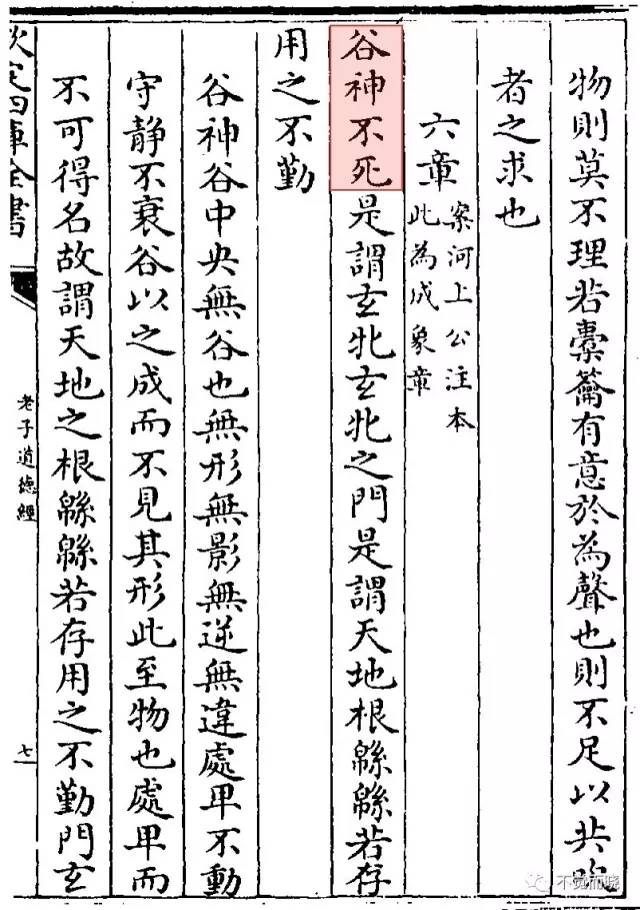 物則莫不理若橐籥有意於為聲也則不足以共吹
者之求也
六章案河上公注本
此為成象章
谷神不死是謂玄牝玄牝之門是謂天地根緜緜若存
用之不勤
谷神谷中央無谷也無形無影無逆無違處卑不動
守静不衰谷以之成而不見其形此至物也處卑而
不可得名故謂天地之根緜緜若存用之不勤門玄
欽定四庫全書
老子道德經
七
不觉而晓